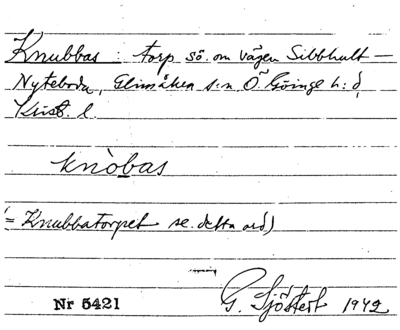 Knubbas: torp sö. om vägen Sibbhult —
Nyteboda, Glimåkra s:n Ö. Göinge h:d,
Krist. l.
knòbas
(= Knubbatorpet se. detta ord)
G. Sjöstedt 1942
Nr 5421